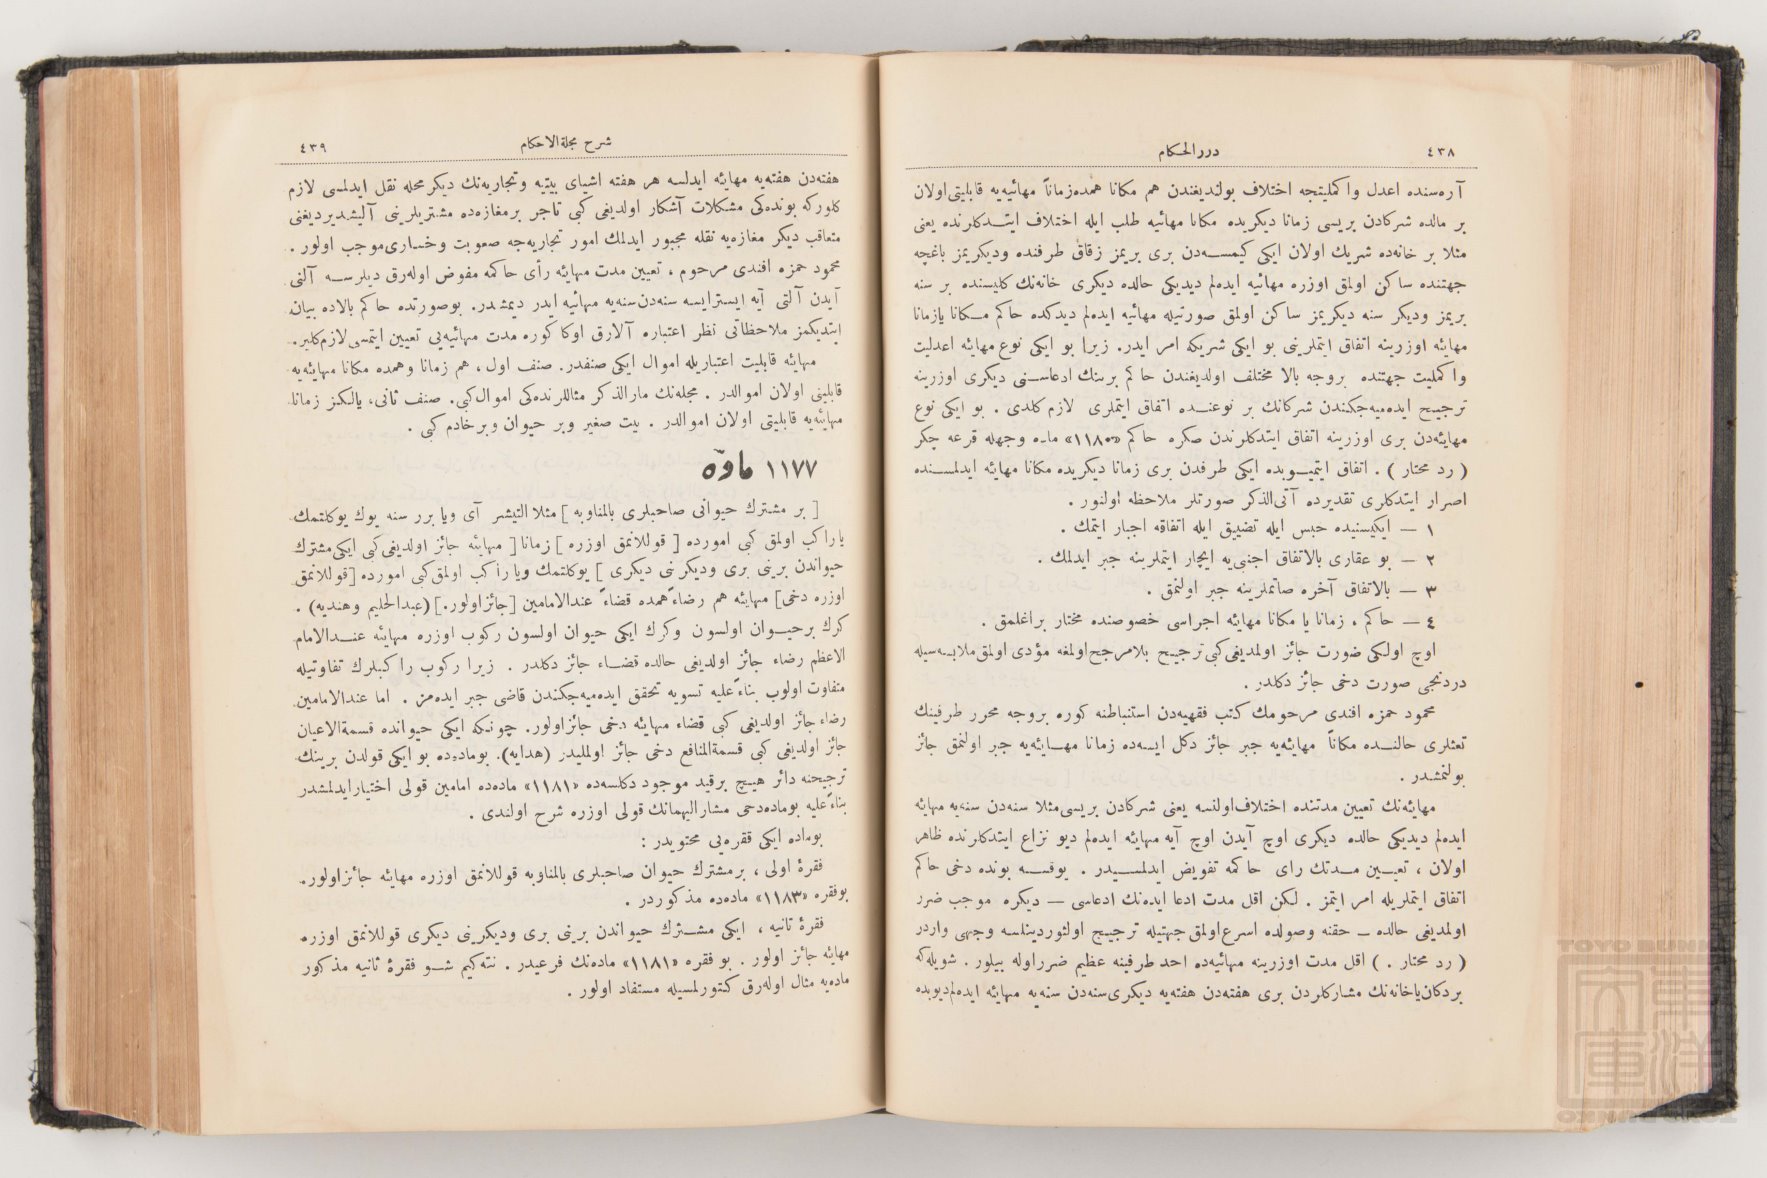 ٤٣٨
دررالحكام
آره‌سنده اعدل واكمليتجه اختلاف بولنديغندن هم مكانا همده‌زماناً مهائيه‌يه قابليتى‌اولان
بر مالده شركادن بريسى زمانا ديكريده مكانا مهائيه طلب ايله اختلاف ايتــدكلرنده يعنى
مثلا بر خانه‌ده شريك اولان ايكى كيمســه‌دن برى بريمز زقاق طرفنده وديكريمز باغچه
جهتنده ساكن اولمق اوزره مهائيه ايده‌لم ديديكى حالده ديكرى خانه‌نك كليسنده بر سنه
بريمز وديكر سنه ديكريمز ساكن اولمق صورتيله مهائيه ايده‌لم ديدكده حاكم مــكانا يازمانا
مهايئه اوزرينه اتفاق ايتملرينى بو ايكى شريكه امر ايدر. زيرا بو ايكى نوع مهايئه اعدليت
واكمليت جهتنده بروجه بالا مختلف اولديغندن حاكم برينك ادعاســنى ديكرى اوزرينه
ترجيح ايده‌ميه‌جكندن شركانك بر نوعنــده اتفاق ايتملرى لازم كلدى . بو ايكى نوع
مهايئه‌دن برى اوزرينه اتفاق ايتدكلرندن صكره حاكم «١١٨٠» ماده وجهله قرعه چكر
( رد محتار ) . اتفاق ايتميــوبده ايكى طرفدن برى زمانا ديكريده مكانا مهايئه ايدلمســنده
اصرار ايتدكلرى تقديرده آتى‌الذكر صورتلر ملاحظه اولنور .
١ — ايكيسنيده حبس ايله تضييق ايله اتفاقه اجبار ايتمك .
٢ — بو عقارى بالاتفاق اجنبى‌يه ايجار ايتملرينه جبر ايدلمك .
٣ — بالاتفاق آخره صاتملرينه جبر اولنمق .
٤ — حاكم ، زمانا يا مكانا مهايئه اجراسى خصوصنده مختار براغلمق .
اوچ اولكى صورت جائز اولمديغى‌كبى ترجيح بلامرجح‌اولمغه مؤدى اولمق‌ملابسه‌سيله
دردنجى صورت دخى جائز دكلدر .
محمود حمزه افندى مرحومك كتب فقهيه‌دن استنباطنه كوره بروجه محرر طرفينك
تعنتلرى حالنــده مكاناً مهايئه‌يه جبر جائز دكل ايسه‌ده زمانا مهــايئه‌يه جبر اولنمق جائز
بولنمشدر .
مهايئه‌نك تعيين مدتنده اختلاف‌اولنسه يعنى شركادن بريسى‌مثلا سنه‌دن سنه‌يه مهايئه
ايده‌لم ديديكى حالده ديكرى اوچ آيدن اوچ آيه مهايئه ايده‌لم ديو نزاع ايتدكلرنده ظاهر
اولان ، تعيــين مــدتك راى حاكمه تفويض ايدلمســيدر . يوقســه بونده دخى حاكم
اتفاق ايتملريله امر ايتمز . لكن اقل مدت ادعا ايده‌نك ادعاسى — ديكره موجب ضرر
اولمديغى حالده — حقنه وصولده اسرع‌اولمق جهتيله ترجيح اولنورديتلسه وجهى واردر
( رد محتار . ) اقل مدت اوزرينه مهائيه‌ده احد طرفينه عظيم ضرراوله بيلور . شويله‌كه
بردكان‌ياخانه‌نك مشاركلردن برى هفته‌دن هفته‌يه ديكرى‌سنه‌دن سنه‌يه مهايئه ايده‌لم‌ديوبده
شرح مجلةالاحكام
٤٣٩
هفته‌دن هفته‌يه مهايئه ايدلسه هر هفته اشياى بيتيه وتجاريه‌نك ديكر محله نقل ايدلمسى لازم
كلوركه بونده‌كى مشكلات آشكار اولديغى كبى تاجر برمغازه‌ده مشتريلرينى آليشديرديغنى
متعاقب ديكر مغازه‌يه نقله مجبور ايدلمك امور تجاريه‌جه صعوبت وخسارى‌موجب اولور .
محمود حمزه افندى مرحوم ، تعيين مدت مهايئه رأى حاكمه مفوض اوله‌رق ديلرســه آلتى
آيدن آلتى آيه ايسترايسه سنه‌دن‌سنه‌يه مهائيه ايدر ديمشدر. بوصورتده حاكم بالاده بيان
ايتديكمز ملاحظاتى نظر اعتباره آلارق اوكا كوره مدت مهائيه‌يى تعيين ايتمسى‌لازم‌كلير.
مهايئه قابليت اعتباريله اموال ايكى صنفدر. صنف اول، هم زمانا وهمده مكانا مهايئه‌يه
قابليتى اولان اموالدر . مجله‌نك مارالذكر مثاللرنده‌كى اموال‌كبى. صنف ثانى، يالكز زمانا
مهايئه‌يه قابليتى اولان اموالدر . بيت صغير وبر حيوان وبرخادم كبى .
١١٧٧ مادّه
[ بر مشترك حيوانى صاحبلرى بالمناوبه ] مثلا التيشر آى ويا برر سنه يوك يوكلتمك
ياراكب اولمق كبى اموردە [ قوللانمق اوزره ] زمانا [ مهايئه جائز اولديغى‌كبى ايكى‌مشترك
حيواندن برينى برى وديكرنى ديكرى ] يوكلتمك ويا راكب اولمق‌كبى اموردە [قوللانمق
اوزره دخى] مهايئه هم رضاءً همده قضاءً عندالامامين [جائزاولور.] (عبدالحليم وهنديه) .
كرك برحيــوان اولسون وكرك ايكى حيوان اولسون ركوب اوزره مهايئه عنــدالامام
الاعظم رضاء جائز اولديغى حالده قضــاء جائز دكلدر . زيرا ركوب راكبلرك تفاوتيله
متفاوت اولوب بناءً عليه تسويه تحقق ايده‌ميه‌جكندن قاضى جبر ايده‌مز . اما عندالامامين
رضاء جائز اولديغى كبى قضاء مهايئه دخى جائزاولور. چونكه ايكى حيوانده قسمةالاعيان
جائز اولديغى كبى قسمةالمنافع دخى جائز اولمليدر (هدايه). بوماده‌ده بو ايكى قولدن برينك
ترجيحنه دائر هيــچ برقيد موجود دكلسه‌ده «١١٨١» ماده‌ده امامين قولى اختيارايدلمشدر
بناءًعليه بوماده‌دخى مشاراليهمانك قولى اوزره شرح اولندى .
بوماده ايكى فقره‌يى محتويدر :
فقرۀ اولى ، برمشترك حيوان صاحبلرى بالمناوبه قوللانمق اوزره مهايئه جائزاولور.
بوفقره «١١٨٣» ماده‌ده مذكوردر .
فقرۀ ثانيه ، ايكى مشــترك حيواندن برينى برى وديكرينى ديكرى قوللانمق اوزره
مهايئه جائز اولور . بو فقره «١١٨١» ماده‌نك فرعيدر . نته‌كيم شــو فقرۀ ثانيه مذكور
ماده‌يه مثال اوله‌رق كتورلمسيله مستفاد اولور .
TOYO BUNKO